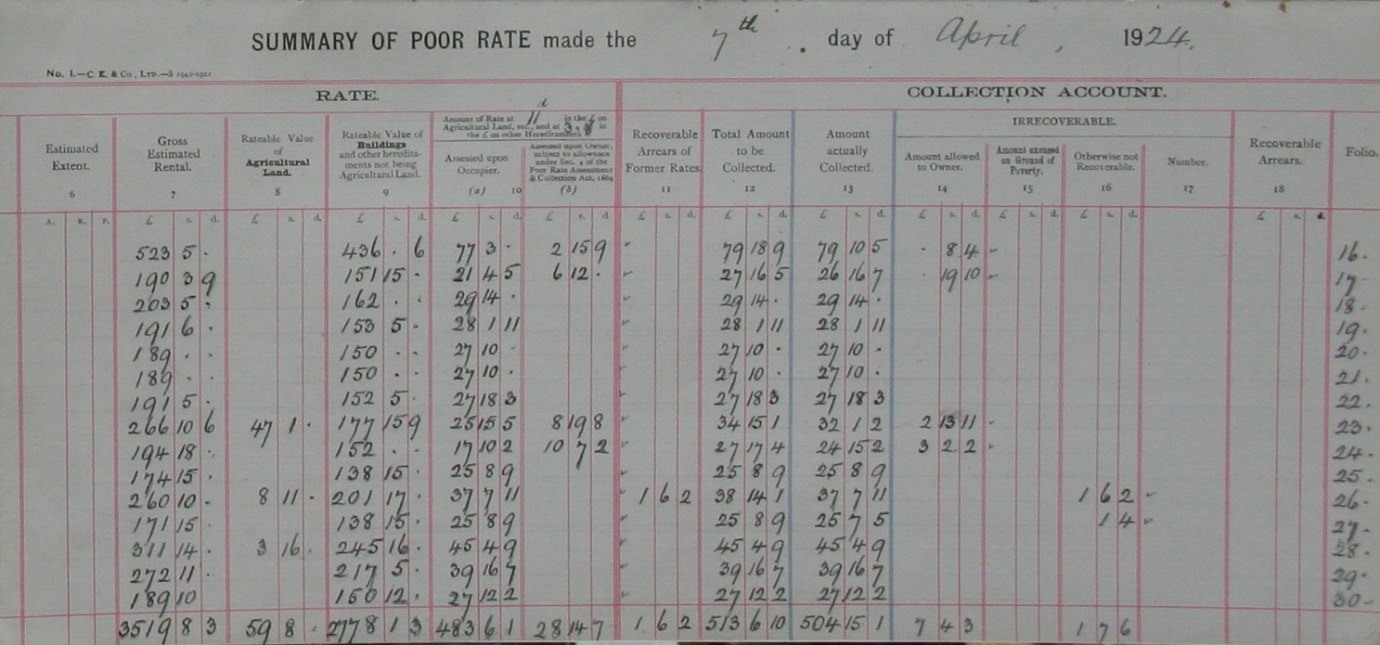 SUMMARY OF POOR RATE made the 7th . day of April , 1924.
No. 1.—C. K. & Co, LTD.—S
RATE. COLLECTION ACCOUNT.
Estimated Extent. 6
Gross Estimated Rental. 7
Rateable Value of Agricultural Land. 8
Rateable Value of Buildings and other heredita- ments not being Agricultural Land. 9
Amount of Rate at 11d in the £ on Agricultural Land, etc., and at in the £ on other Hereditaments
Assessed upon Occupier. (a) 10
Assessed upon Owner, subject to allowance under Sec. 4 of the Poor Rate Assessment & Collection Act, 1869 (b)
Recoverable Arrears of Former Rates. 11
Total Amount to be Collected. 12
Amount actually Collected. 13
IRRECOVERABLE.
Amount allowed to Owner. 14
Amount excused on Ground of Poverty. 15
Otherwise not Recoverable. 16
Number. 17
Recoverable Arrears. 18
Folio.
A. R. P. £ s. d. £ s. d. £ s. d. £ s. d. £ s. d. £ s. d. £ s. d. £ s. d. £ s. d. £ s. d. £ s. d. £ s. d.
523 5 · 436 · 6 77 3 · 2 15 9 79 18 9 79 10 5 · 8 4 16.
190 3 9 151 15 · 21 4 5 6 12 · 27 16 5 26 16 7 · 19 10 17.
203 5 · 162 · · 29 14 · 29 14 · 29 14 · 18.
191 6 · 153 5 · 28 1 11 28 1 11 28 1 11 19.
189 · · 150 · · 27 10 · 27 10 · 27 10 · 20.
189 · · 150 · · 27 10 · 27 10 · 27 10 · 21.
191 5 · 152 5 · 27 18 3 27 18 3 27 18 3 22.
266 10 6 47 1 · 177 15 9 25 15 5 8 19 8 34 15 1 32 1 2 2 13 11 23.
194 18 · 152 · · 17 10 2 10 7 2 27 17 4 24 15 2 3 2 2 24.
174 15 · 138 15 · 25 8 9 25 8 9 25 8 9 25.
260 10 - 8 11 · 201 17 · 37 7 11 1 6 2 38 14 1 37 7 11 1 6 2 26.
171 15 · 138 15 · 25 8 9 25 8 9 25 7 5 1 4 27.
311 14 · 3 16 · 245 16 · 45 4 9 45 4 9 45 4 9 28.
272 11 · 217 5 · 39 16 7 39 16 7 39 16 7 29.
189 10 150 12 · 27 12 2 27 12 2 27 12 2 30
3519 8 3 59 8 · 2778 1 3 483 6 1 28 14 7 1 6 2 513 6 10 504 15 1 7 4 3 1 7 6